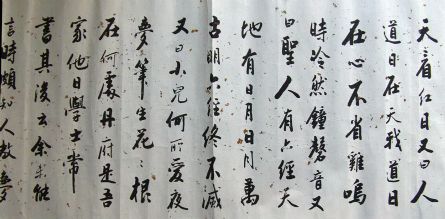 天看红日又曰人
道日在天我道日
在心不省雞鳴
時冷然鐘磬音又
曰聖人有六經天
地有日月日月萬
古明六經終不滅
又曰小兒何所愛夜
夢筆生花花根
在何處丹府是吾
家他日學士常
書其後云余未能
言時頗知人故夢